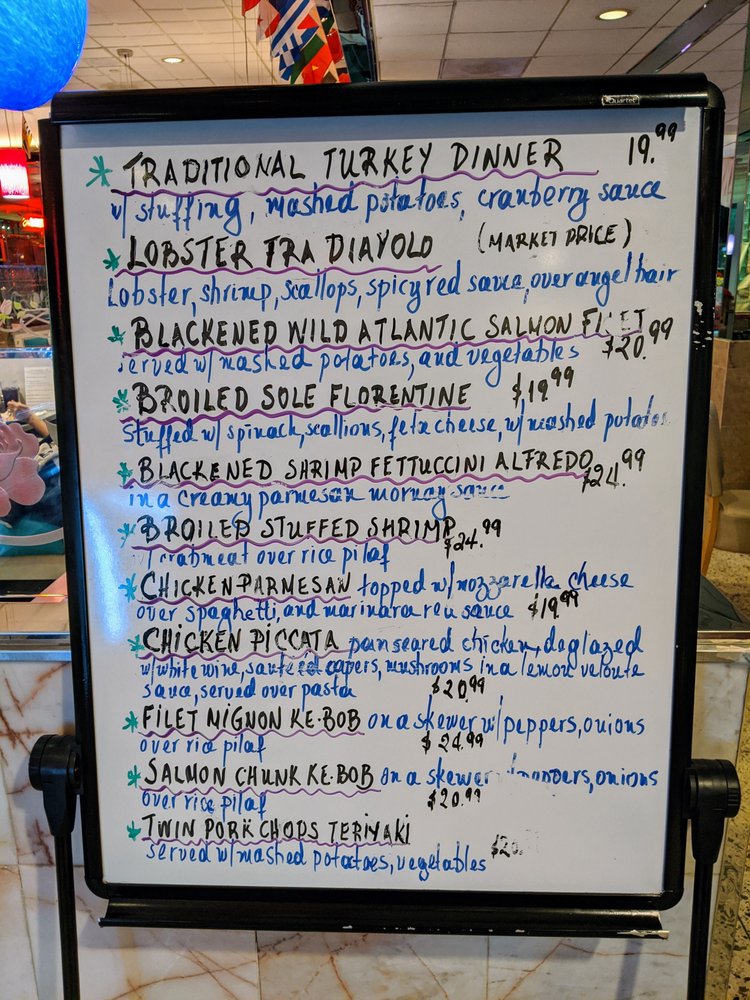 Quartet
TRADITIONAL TURKEY DINNER 19.99
w/ stuffing, mashed potatoes, cranberry sauce
LOBSTER FRA DIAVOLO (MARKET PRICE)
Lobster, shrimp, scallops, spicy red sauce, over angel hair
BLACKENED WILD ATLANTIC SALMON FILET
served w/ mashed potatoes, and vegetables $20.99
BROILED SOLE FLORENTINE $19.99
Stuffed w/ spinach, scallions, feta cheese, w/ mashed potatoes
BLACKENED SHRIMP FETTUCCINI ALFREDO $24.99
in a creamy parmesan mornay sauce
BROILED STUFFED SHRIMP $24.99
w/ crabmeat over rice pilaf
CHICKEN PARMESAN topped w/ mozzarella cheese
over spaghetti, and marinara red sauce $19.99
CHICKEN PICCATA pan seared chicken, deglazed
w/ white wine, sauteed capers, mushrooms in a lemon veloute
sauce, served over pasta $20.99
FILET MIGNON KE-BOB on a skewer w/ peppers, onions
over rice pilaf $24.99
SALMON CHUNK KE-BOB on a skewer w/ peppers, onions
over rice pilaf $20.99
TWIN PORK CHOPS TERIYAKI
served w/ mashed potatoes, vegetables $20.